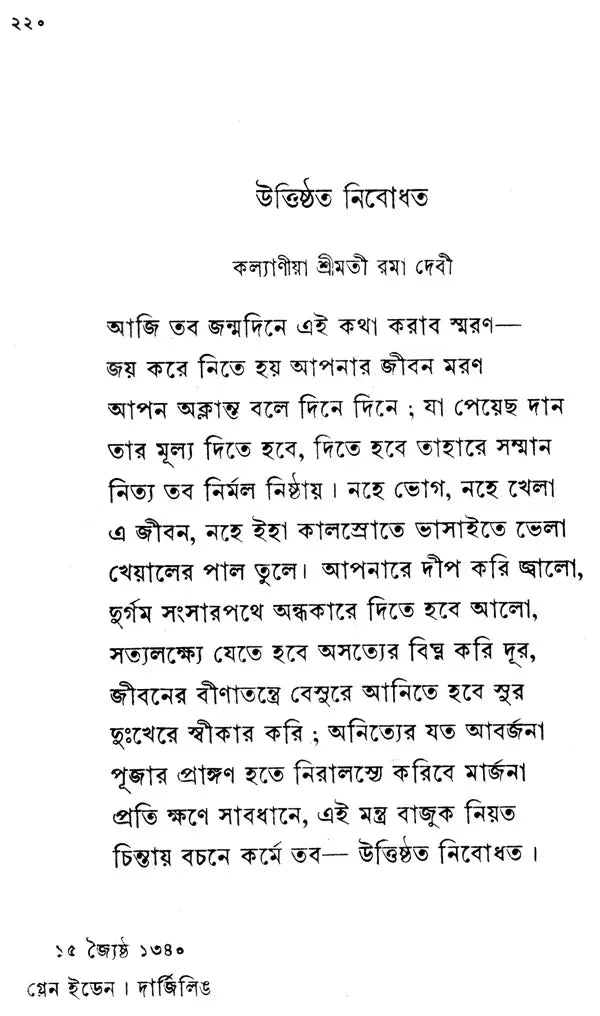 ২২০
উত্তিষ্ঠত নিবোধত
কল্যাণীয়া শ্রীমতী রমা দেবী
আজি তব জন্মদিনে এই কথা করাব স্মরণ—
জয় করে নিতে হয় আপনার জীবন মরণ
আপন অক্লান্ত বলে দিনে দিনে ; যা পেয়েছ দান
তার মূল্য দিতে হবে, দিতে হবে তাহারে সম্মান
নিত্য তব নির্মল নিষ্ঠায়। নহে ভোগ, নহে খেলা
এ জীবন, নহে ইহা কালস্রোতে ভাসাইতে ভেলা
খেয়ালের পাল তুলে। আপনারে দীপ করি জ্বালো,
দুর্গম সংসারপথে অন্ধকারে দিতে হবে আলো,
সত্যলক্ষ্যে যেতে হবে অসত্যের বিঘ্ন করি দূর,
জীবনের বীণাতন্ত্রে বেসুরে আনিতে হবে সুর
দুঃখেরে স্বীকার করি ; অনিত্যের যত আবর্জনা
পূজার প্রাঙ্গণ হতে নিরালস্যে করিবে মার্জনা
প্রতি ক্ষণে সাবধানে, এই মন্ত্র বাজুক নিয়ত
চিন্তায় বচনে কর্মে তব— উত্তিষ্ঠত নিবোধত।
১৫ জ্যৈষ্ঠ ১৩৪০
গ্লেন ইডেন। দার্জিলিঙ